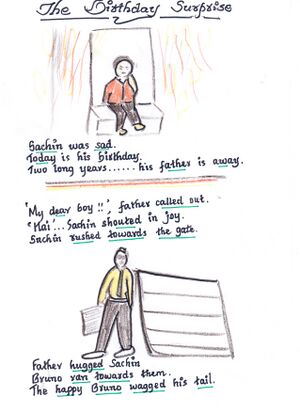 The Birthday Surprise
Sachin was sad.
Today is his birthday.
Two long years...... his father is away.
'My dear boy !!', father called out.
'Hai'... Sachin shouted in joy.
Sachin rushed towards the gate.
Father hugged Sachin
Bruno ran towards them.
The happy Bruno wagged his tail.